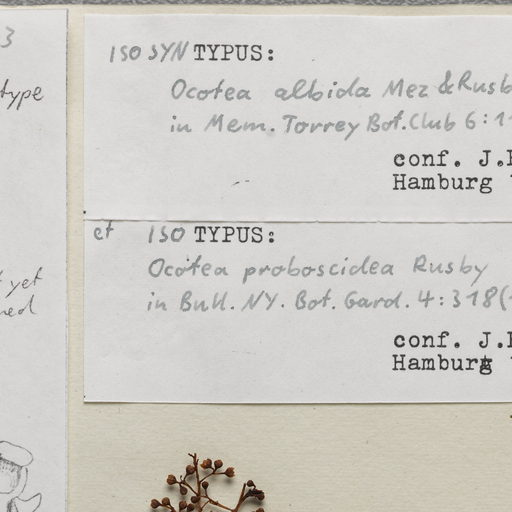 3
type
ISO SYN TYPUS:
Ocotea albida Mez & Rusb
in Mem. Torrey Bot. Club 6:11
conf. J.
Hamburg
et ISO TYPUS:
Ocotea proboscidea Rusby
in Bull. NY. Bot. Gard. 4:318(
yet
conf. J.
Hamburg